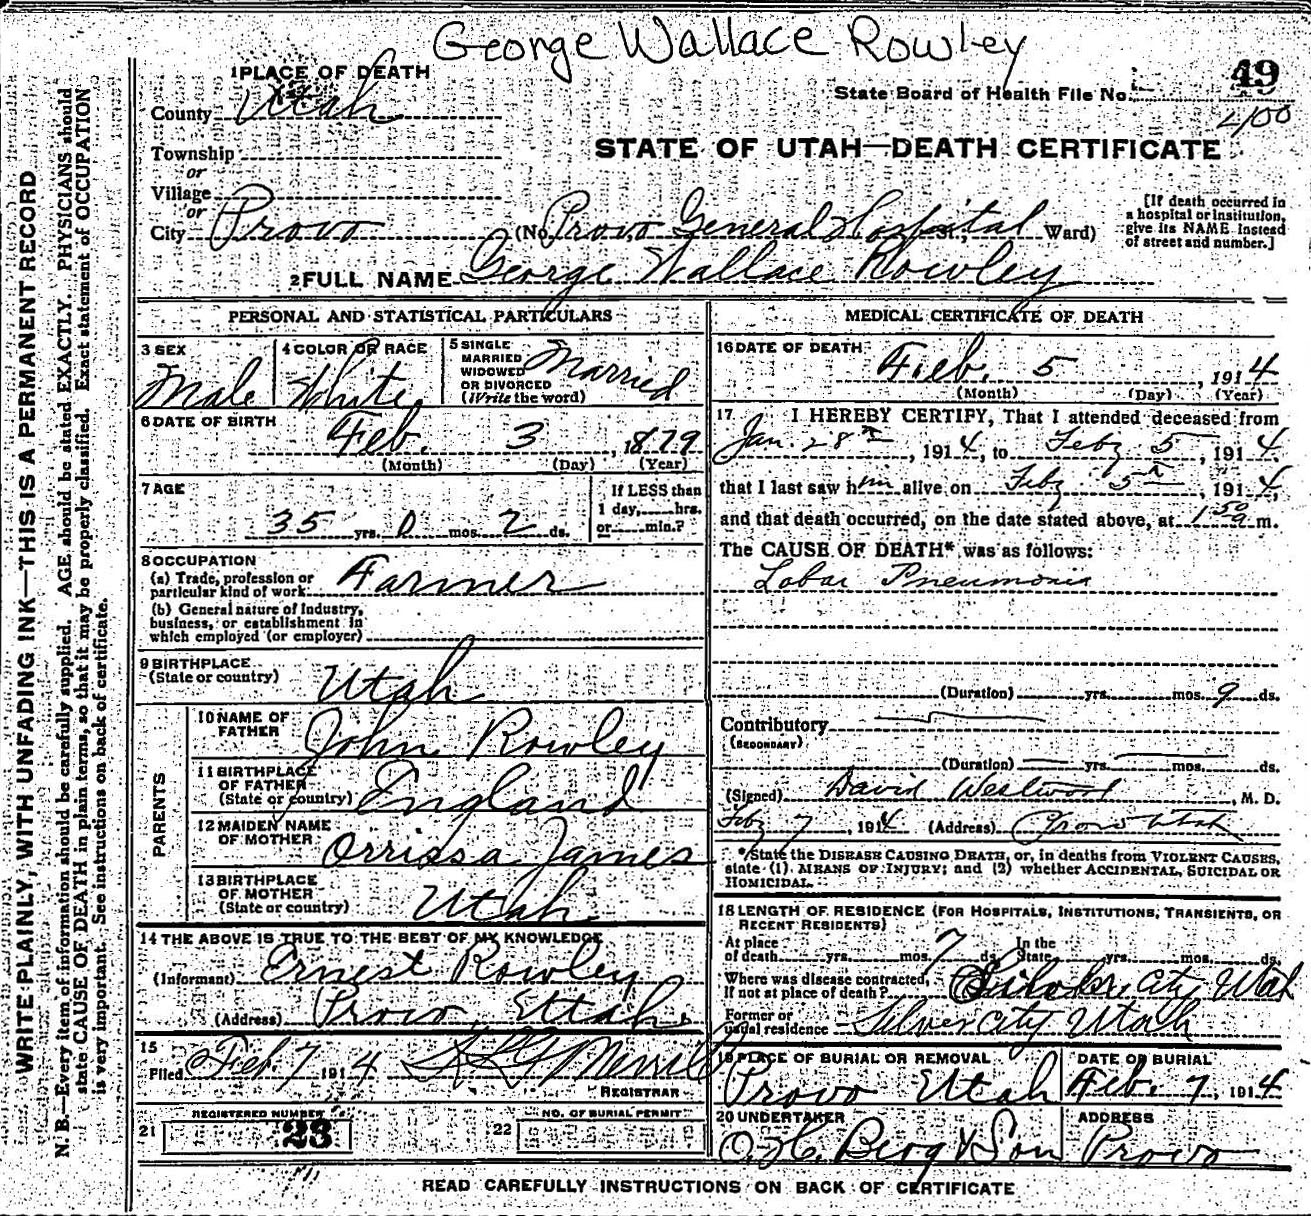 George Wallace Rowley
49
State Board of Health File No.
400
1 PLACE OF DEATH
County Utah
Township
or
Village
or
City Provo (No. Provo General Hospital, Ward)
STATE OF UTAH—DEATH CERTIFICATE
[If death occurred in
a hospital or institution,
give its NAME instead
of street and number.]
2 FULL NAME George Wallace Rowley
PERSONAL AND STATISTICAL PARTICULARS
3 SEX
Male
4 COLOR OR RACE
White
5 SINGLE
MARRIED
WIDOWED
OR DIVORCED
(Write the word)
Married
6 DATE OF BIRTH
Feb. 3, 1879
(Month) (Day) (Year)
7 AGE
35 yrs. 0 mos. 2 ds.
If LESS than
1 day, hrs.
or min.?
8 OCCUPATION
(a) Trade, profession or
particular kind of work Farmer
(b) General nature of industry,
business, or establishment in
which employed (or employer)
9 BIRTHPLACE
(State or country) Utah
PARENTS
10 NAME OF
FATHER John Rowley
11 BIRTHPLACE
OF FATHER
(State or country) England
12 MAIDEN NAME
OF MOTHER Orrissa James
13 BIRTHPLACE
OF MOTHER
(State or country) Utah
14 THE ABOVE IS TRUE TO THE BEST OF MY KNOWLEDGE
(Informant) Ernest Rowley
(Address) Provo, Utah.
15
Filed Feb. 7 1914 Merrill
REGISTRAR
21 REGISTERED NUMBER
23
22 NO. OF BURIAL PERMIT
MEDICAL CERTIFICATE OF DEATH
16 DATE OF DEATH
Feb. 5, 1914
(Month) (Day) (Year)
17 I HEREBY CERTIFY, That I attended deceased from
Jan. 28th, 1914, to Feby 5, 1914.
that I last saw him alive on Feby 5th, 1914,
and that death occurred, on the date stated above, at 1 50 a m.
The CAUSE OF DEATH* was as follows:
Lobar Pneumonia
(Duration) yrs. mos. 9 ds.
Contributory
(SECONDARY)
(Duration) yrs. mos. ds.
(Signed) David Westwood, M. D.
Feby 7, 1914 (Address) Provo Utah
*State the DISEASE CAUSING DEATH, or, in deaths from VIOLENT CAUSES,
state (1) MEANS OF INJURY; and (2) whether ACCIDENTAL, SUICIDAL OR
HOMICIDAL.
18 LENGTH OF RESIDENCE (FOR HOSPITALS, INSTITUTIONS, TRANSIENTS, OR
RECENT RESIDENTS)
At place
of death yrs. mos. 7 ds. In the
State yrs. mos. ds.
Where was disease contracted,
If not at place of death? Silver City Utah
Former or
usual residence Silver City Utah
19 PLACE OF BURIAL OR REMOVAL
Provo Utah
DATE OF BURIAL
Feb. 7, 1914
20 UNDERTAKER
O. H. Berg & Son
ADDRESS
Provo
READ CAREFULLY INSTRUCTIONS ON BACK OF CERTIFICATE
WRITE PLAINLY, WITH UNFADING INK—THIS IS A PERMANENT RECORD
N. B.—Every item of information should be carefully supplied. AGE should be stated EXACTLY. PHYSICIANS should
state CAUSE OF DEATH in plain terms, so that it may be properly classified. Exact statement of OCCUPATION
is very important. See instructions on back of certificate.